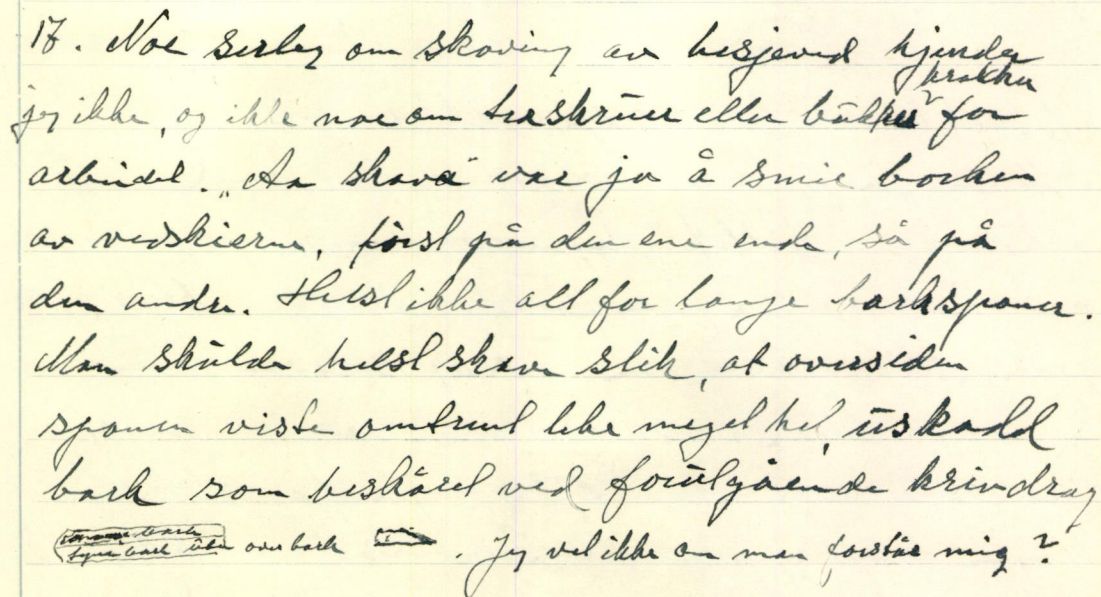 17. Noe serleg om skaving av hesjeved kjender
krakker
jeg ikke, og ikke noe om treskruer eller bukker for
arbeidet. "Aa skava" var jo å smie borken
av vedskierne, først på den ene ende, så på
den andre. Helst ikke alt for lange barkspaner.
Man skulde helst skave slik, at oversiden
spanen viste omtrent like meget hel, uskadd
bark som beskåret ved forutgående knivdrag
overbark . Jeg vet ikke om man forstår mig?